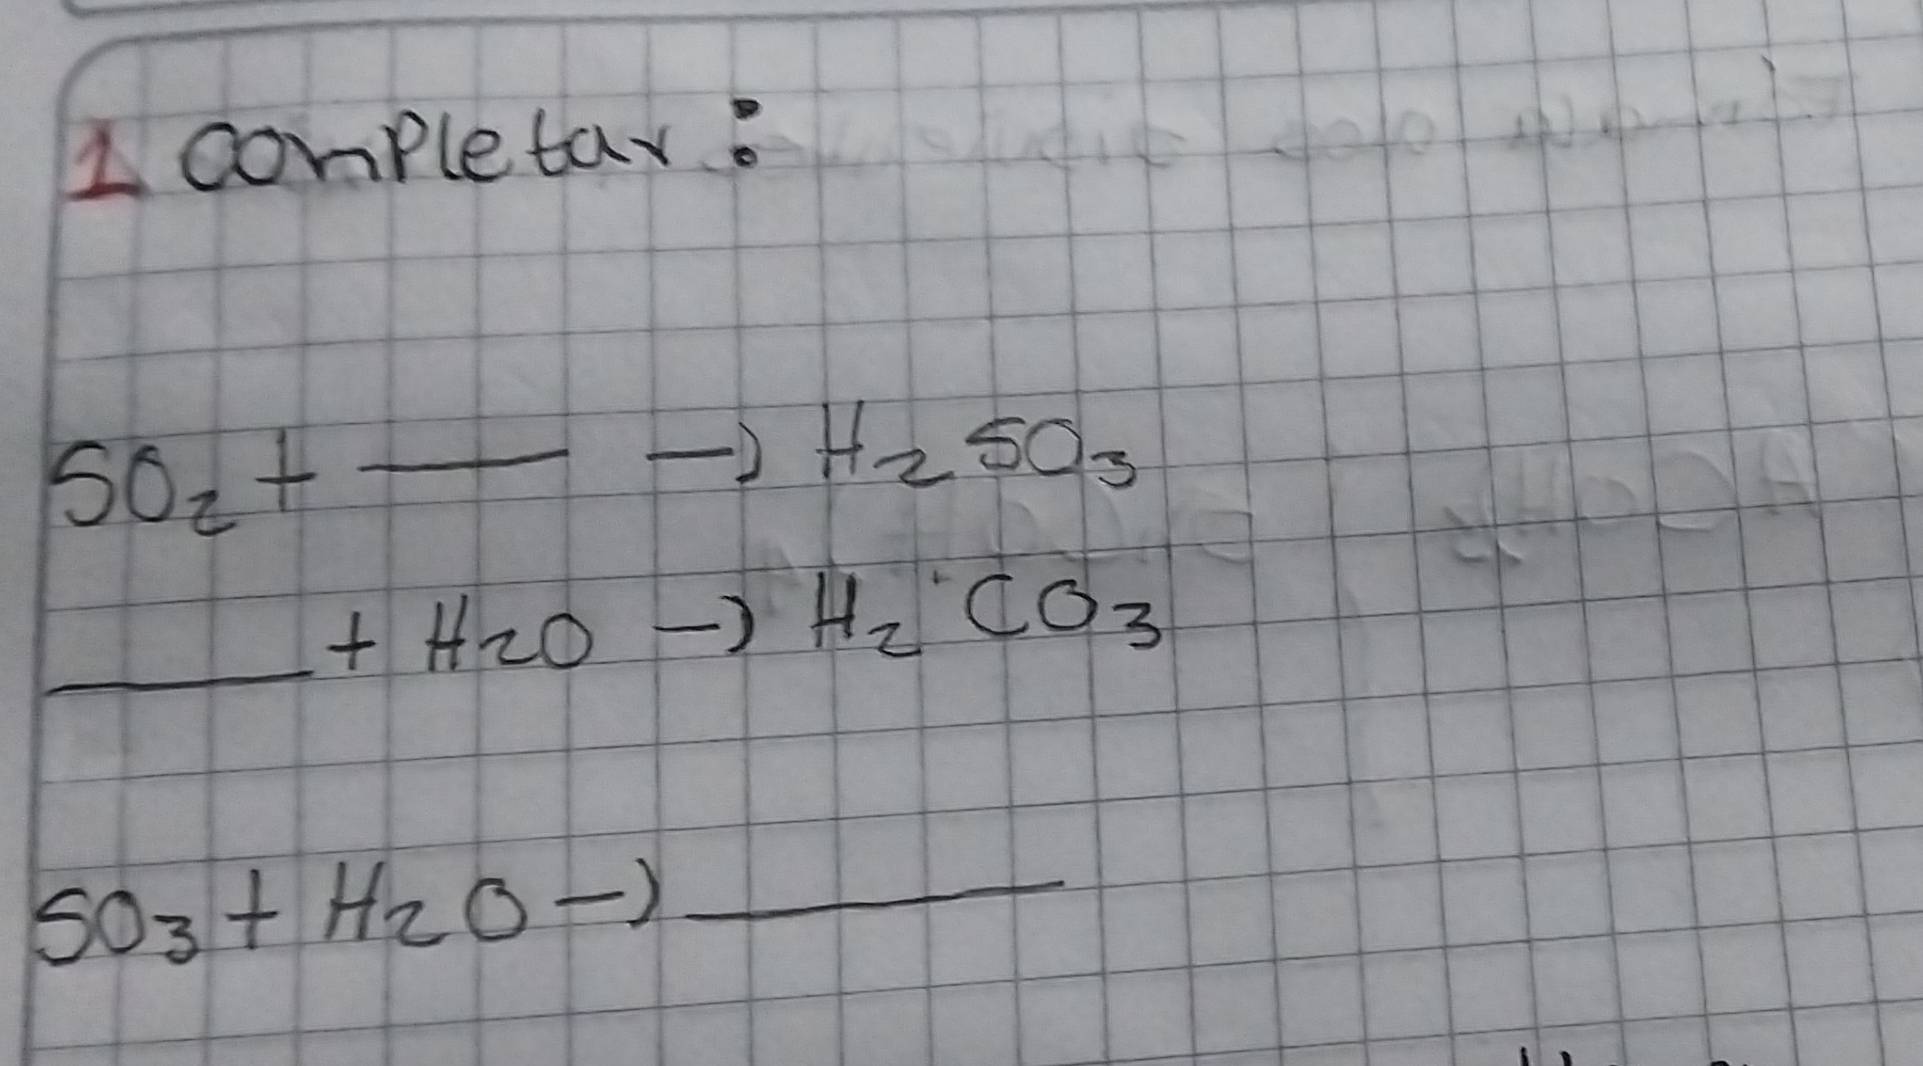 1 completar:
SO₂ + — → H₂SO₃
___ + H₂O → H₂CO₃
SO₃ + H₂O → ___